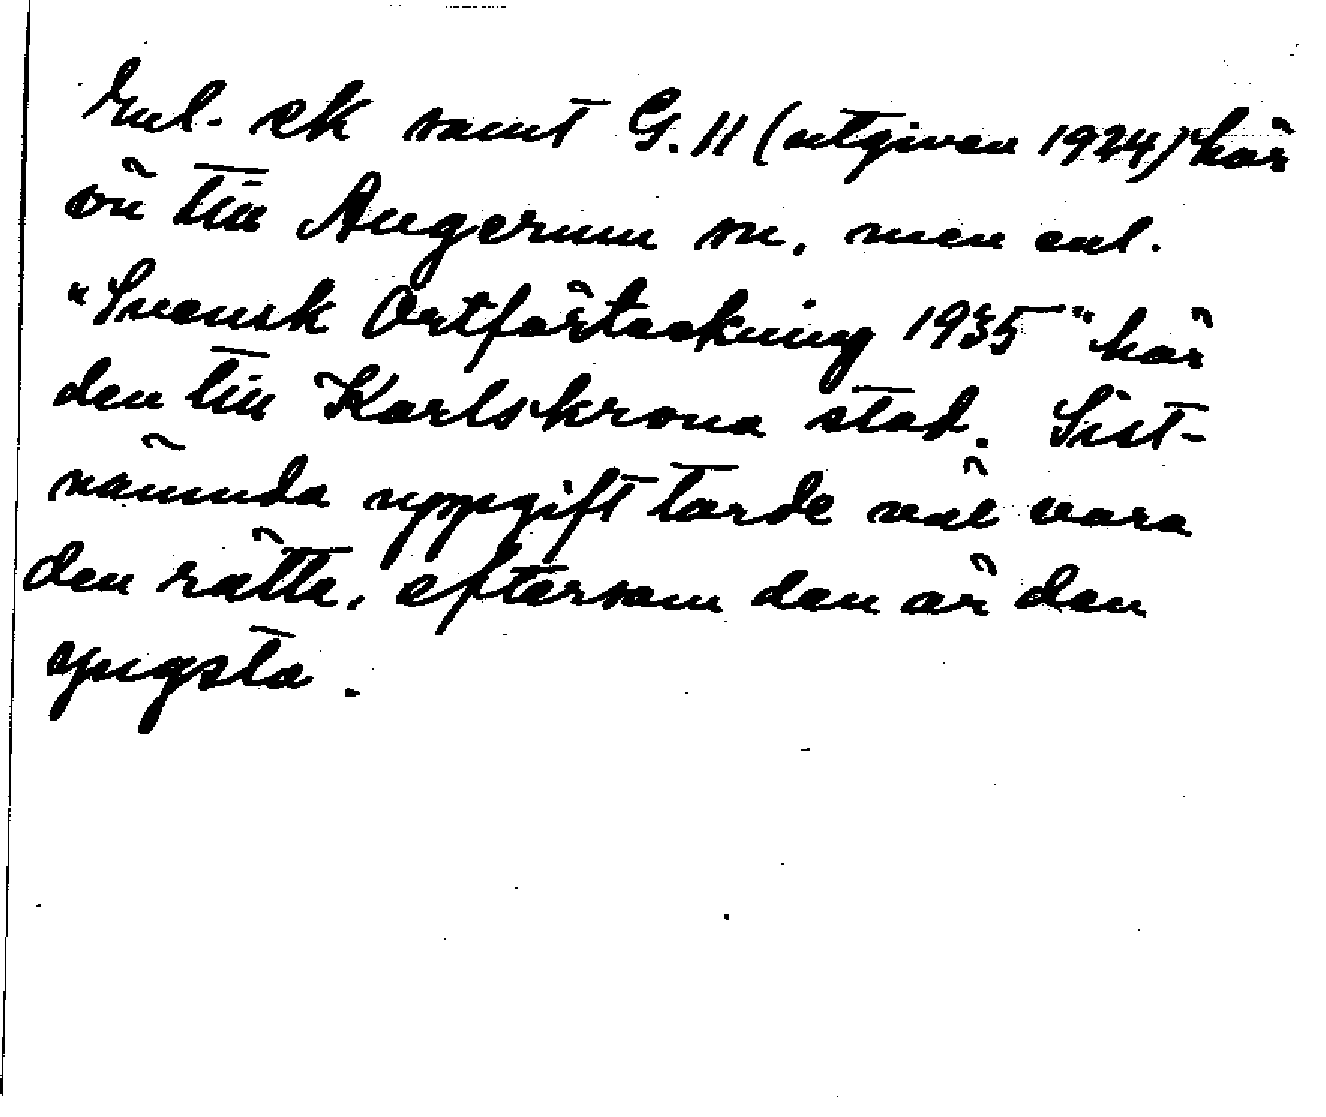 Enl. ek samt G. II (utgiven 1924) hör
ön till Augerum sn, men enl.
"Svensk Ortförteckning 1935" hör
den till Karlskrona stad. Sist-
nämnda uppgift torde väl vara
den rätta, eftersom den är den
yngsta.